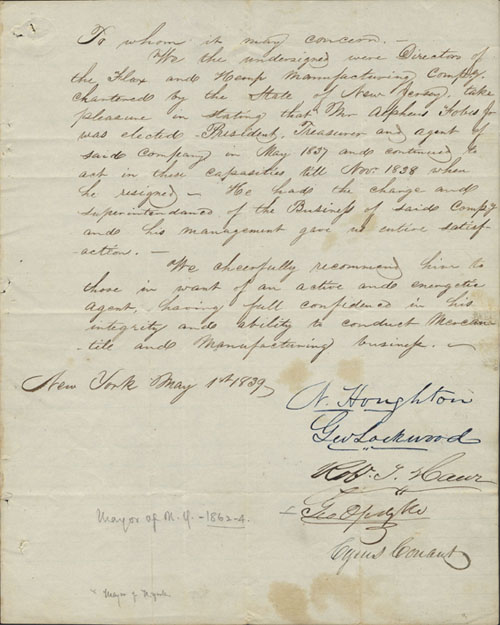 To whom it may concern. —
We the undersigned were Directors of
the Flax and Hemp Manufacturing Compy.
chartered by the State of New Jersey, take
pleasure in stating that Mr Alpheus Fobes Jr
was elected President, Treasurer and agent of
said Company in May 1837 and continued to
act in these capacities till Nov. 1838 when
he resigned — He had the charge and
superintendance of the Business of said Compy
and his management gave us entire satisf-
-action. —
We cheerfully recommend him to
those in want of an active and energetic
Agent, having full confidence in his
integrity and ability to conduct Mercan
-tile and Manufacturing business. —
New York May 1st 1839
N. Houghton
Geo Lockwood
Robt. J.
Geo Opdyke
Cyrus Conant
Mayor of N.Y. - 1862-4.
x Mayor of N York